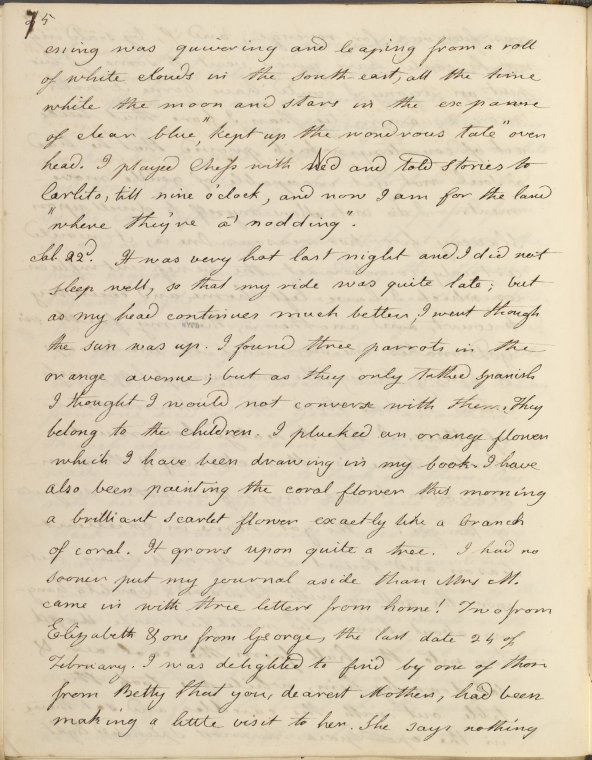 75
ening was quivering and leaping from a roll
of white clouds in the south east, all the time
while the moon and stars in the expanse
of clear blue, "kept up the wondrous tale" over
head. I played Chess with Ned and told stories to
Carlito, till nine o'clock, and now I am for the land
"where they're a' nodding".
Sat. 22d. It was very hot last night and I did not
sleep well, so that my ride was quite late; but
as my head continues much better, I went though
the sun was up. I found three parrots in the
orange avenue; but as they only talked Spanish
I thought I would not converse with them. They
belong to the children. I plucked an orange flower
which I have been drawing in my book. I have
also been painting the coral flower this morning
a brilliant scarlet flower exactly like a branch
of coral. It grows upon quite a tree. I had no
sooner put my journal aside than Mrs M.
came in with three letters from home! Two from
Elizabeth & one from George, the last date 24 of
February. I was delighted to find by one of them
from Betty that you, dearest Mother, had been
making a little visit to her. She says nothing